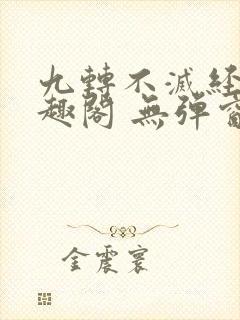 九轉不滅経
趣閣 無弾窗
金震寰